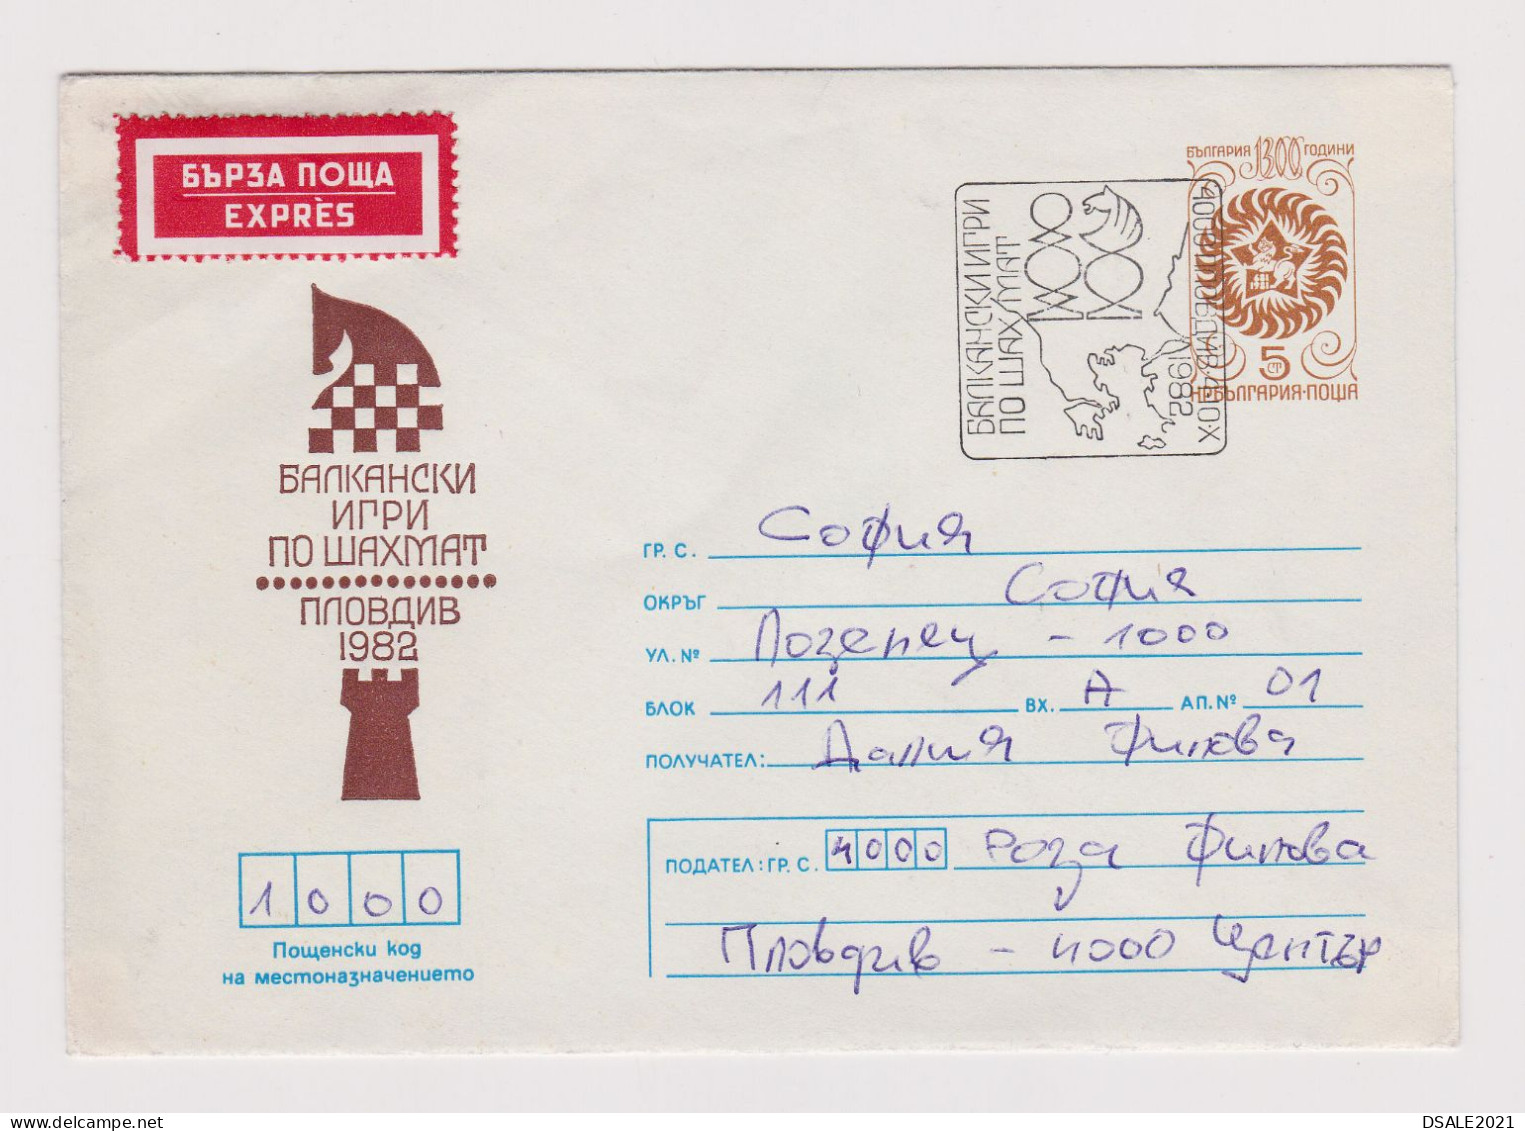 БЪРЗА ПОЩА
EXPRÈS
БЪЛГАРИЯ 1300 ГОДИНИ
5
СТ
НР БЪЛГАРИЯ·ПОЩА
БАЛКАНСКИ ИГРИ
ПО ШАХМАТ
4000 ПЛОВДИВ·4.10.X
1982
БАЛКАНСКИ
ИГРИ
ПО ШАХМАТ
ПЛОВДИВ
1982
ГР. С. София
ОКРЪГ София
УЛ. № Лозенец - 1000
БЛОК 111 ВХ. А АП. № 01
ПОЛУЧАТЕЛ: Далия Филова
ПОДАТЕЛ: ГР. С. 4000 Роза Филова
Пловдив - 4000 Център
1000
Пощенски код
на местоназначението
DSALE2021